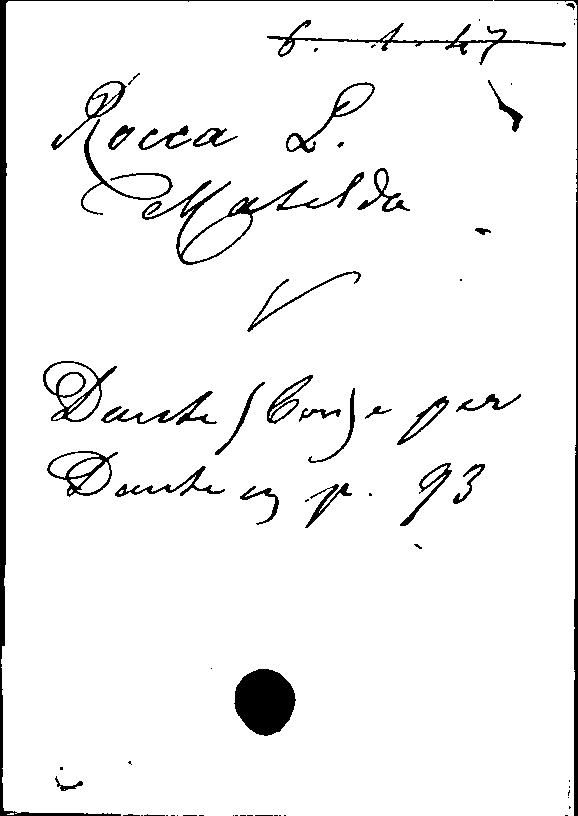 6. 1. 47
Rocca L.
Matilda
V
Dante (Con) e per
Dante p. 93